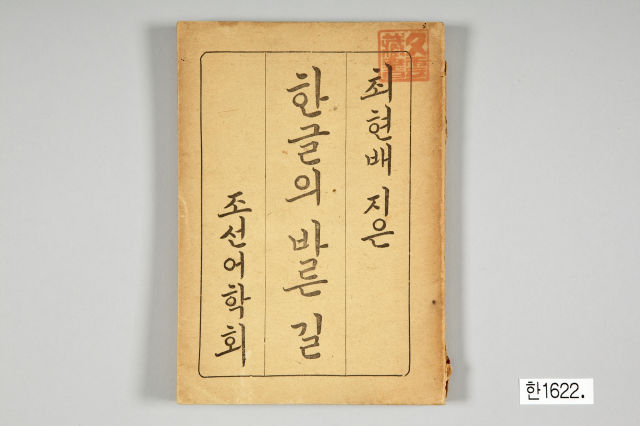 최현배 지은
한글의 바른 길
조선어학회
한1622.